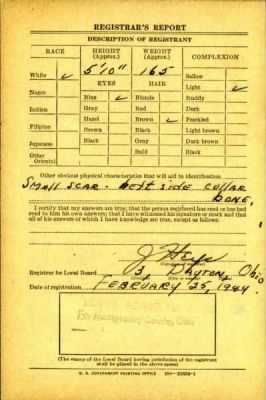 REGISTRAR'S REPORT
DESCRIPTION OF REGISTRANT
RACE HEIGHT (Approx.) WEIGHT (Approx.) COMPLEXION
White ✓ 5'10" 165 Sallow
EYES HAIR Light ✓
Negro Blue ✓ Blonde Ruddy
Indian Gray Red Dark
Hazel Brown ✓ Freckled
Filipino Brown Black Light brown
Japanese Black Gray Dark brown
Other Bald Black
Oriental
Other obvious physical characteristics that will aid in identification
SMALL SCAR - LEFT SIDE COLLAR
BONE.
I certify that my answers are true; that the person registered has read or has had
read to him his own answers; that I have witnessed his signature or mark and that
all of his answers of which I have knowledge are true, except as follows:
Registrar for Local Board 3 DAYTON, Ohio
Date of registration FEBRUARY 25, 1944
For Montgomery County, Ohio
(The stamp of the Local Board having jurisdiction of the registrant
shall be placed in the above space)
U. S. GOVERNMENT PRINTING OFFICE